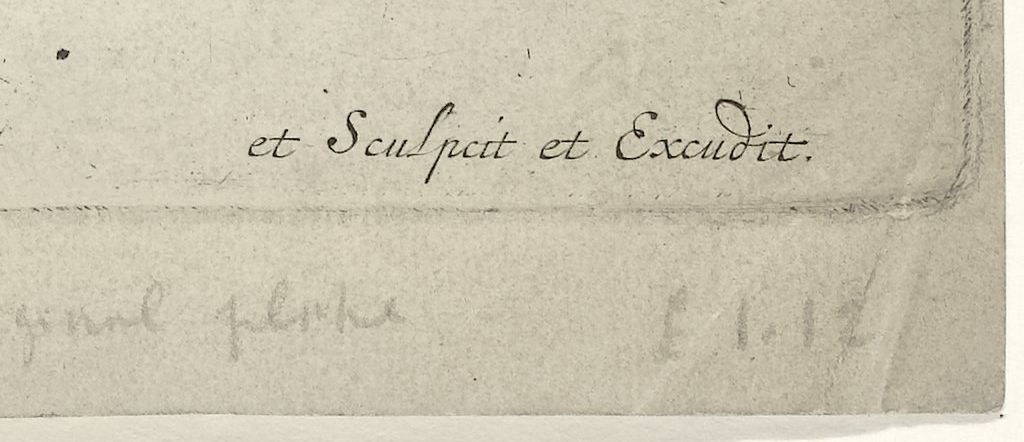 et Sculpcit et Excudit.
ginal plate £ 1.12